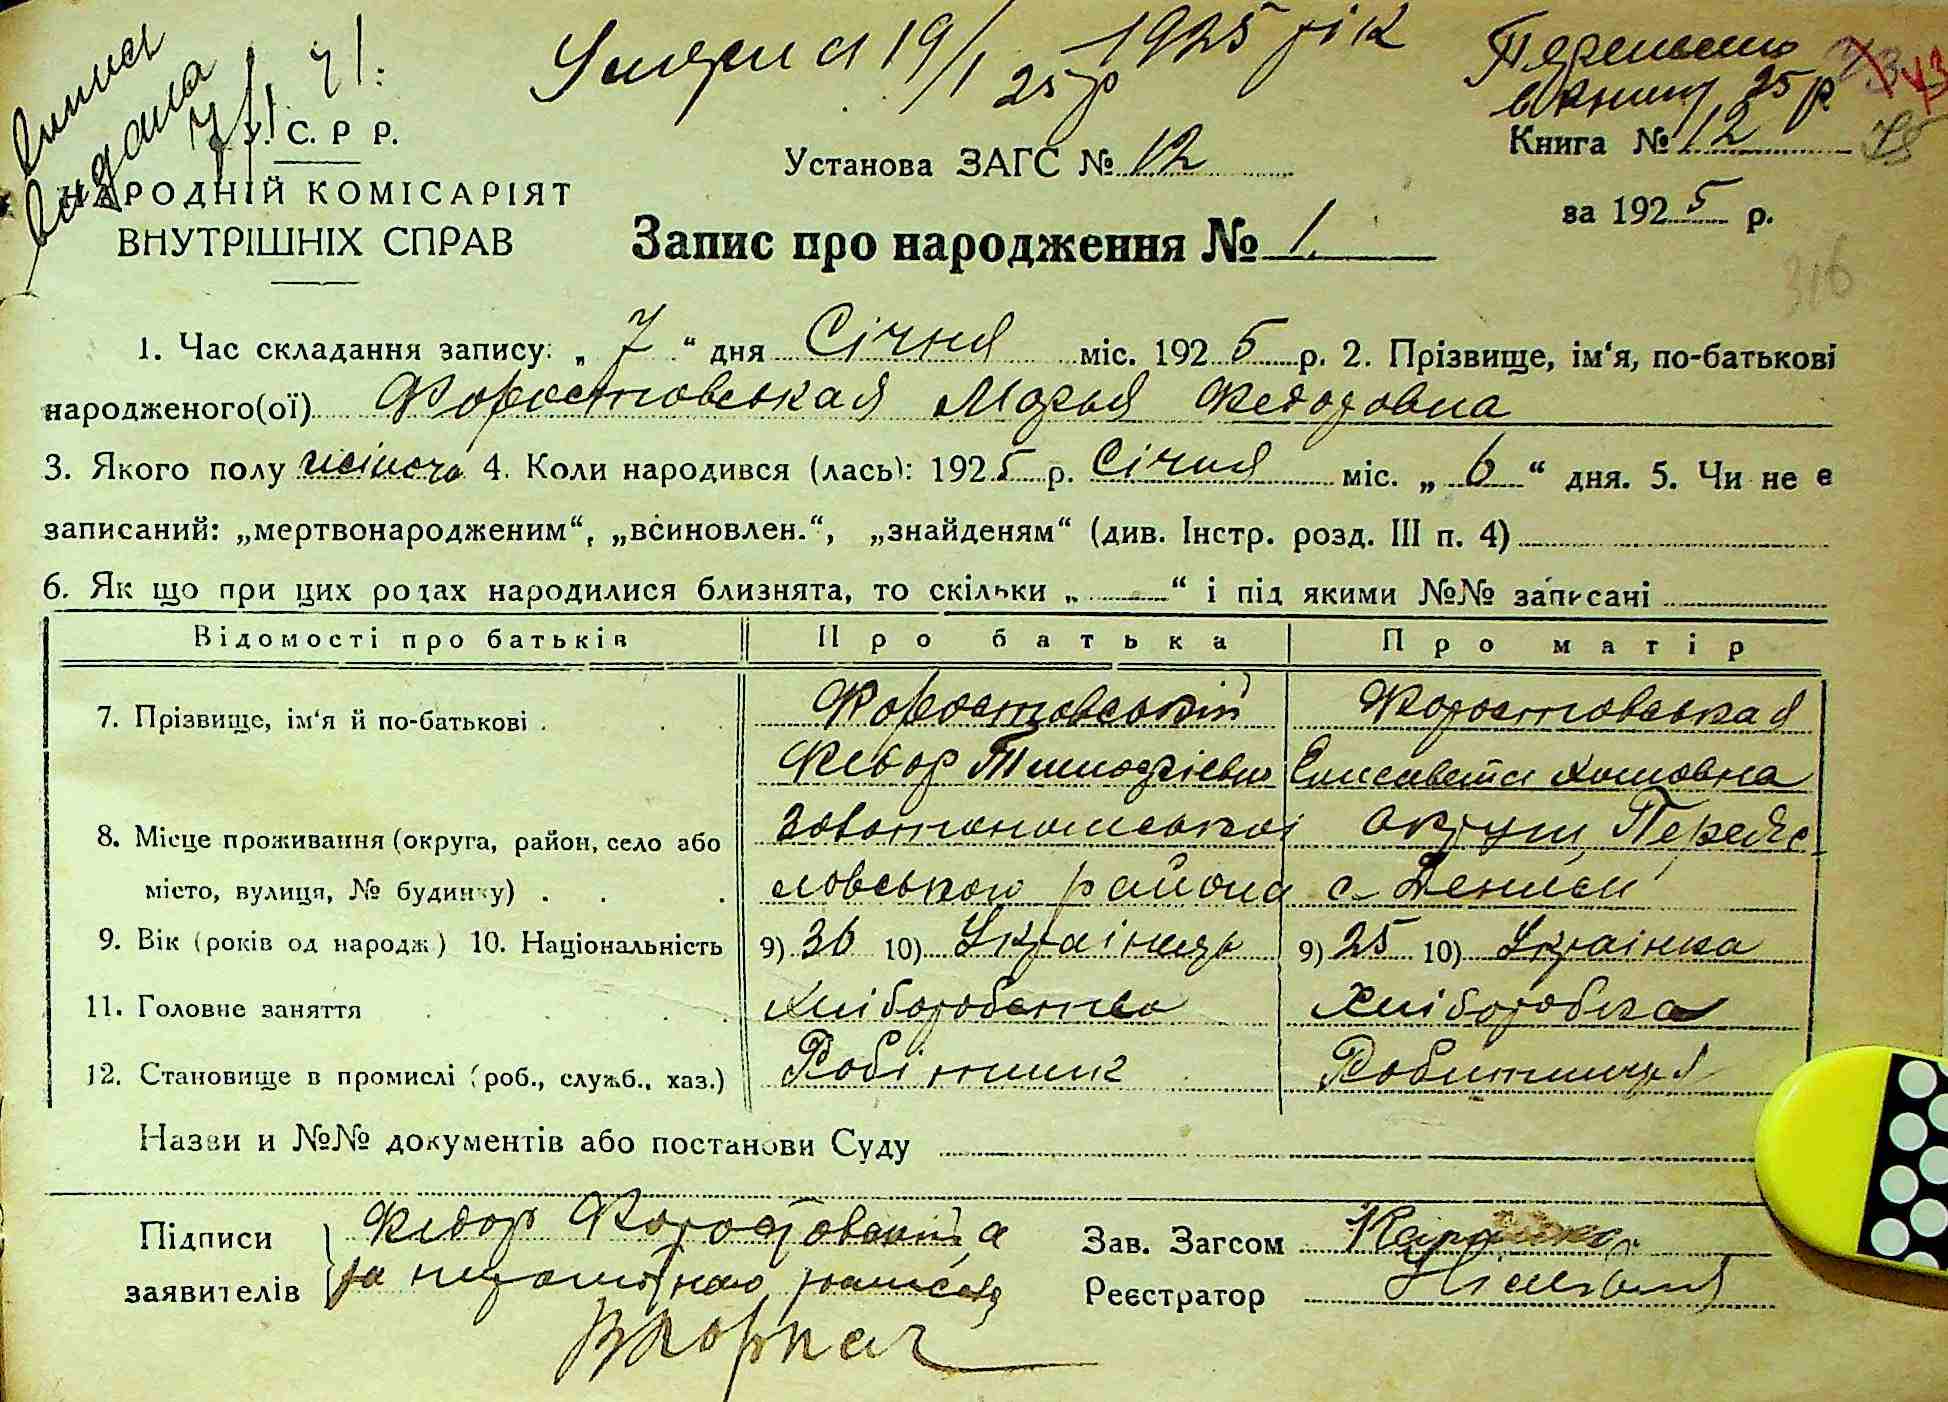 Умерла 19/I 25 р 1925 рік
Випись видана 7/I 41.
в книгу 25 р.
У. С. Р Р.
НАРОДНІЙ КОМІСАРІЯТ
ВНУТРІШНІХ СПРАВ
Установа ЗАГС № 12
Книга № 12
за 1925 р.
Запис про народження № 1.
316
1. Час складання запису: „ 7 “ дня Січня міс. 1925 р. 2. Прізвище, ім‘я, по-батькові
народженого(ої) Форостовськая Марья Федоровна
3. Якого полу жіноча 4. Коли народився (лась): 1925 р. Січня міс. „ 6 “ дня. 5. Чи не є
записаний: „мертвонародженим“, „всиновлен.“, „знайденям“ (див. Інстр. розд. III п. 4)
6. Як що при цих родах народилися близнята, то скільки „ “ і під якими №№ записані
Відомості про батьків Про батька Про матір
7. Прізвище, ім‘я й по-батькові . Форостовський Форостовськая
Федор Тимофієвич Елисавета Хомовна
8. Місце проживання (округа, район, село або Золотоношської округи, Переяс-
місто, вулиця, № будинку) . . . ловського района с. Дениси
9. Вік (років од народж) 10. Національність 9) 36 10) Українець 9) 25 10) Українка
11. Головне заняття Хліборобство Хліборобка
12. Становище в промислі (роб., служб., хаз.) Робітник Робитниця
Назви и №№ документів або постанови Суду
Підписи Федор Форостовский а Зав. Загсом
заявителів за неграмотного росписався Реєстратор